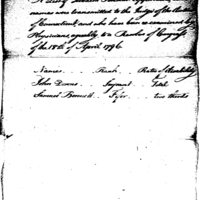 A List of Invalid
names was transmitted to the Judge of the District
of Connecticut, and who have been re-examined by
Physicians, agreeably to a Resolve of Congress
of the 18th of April 1796.
Names Rank Rate of Disability
John Downs Serjeant Total
Samuel Burwell Fifer two thirds